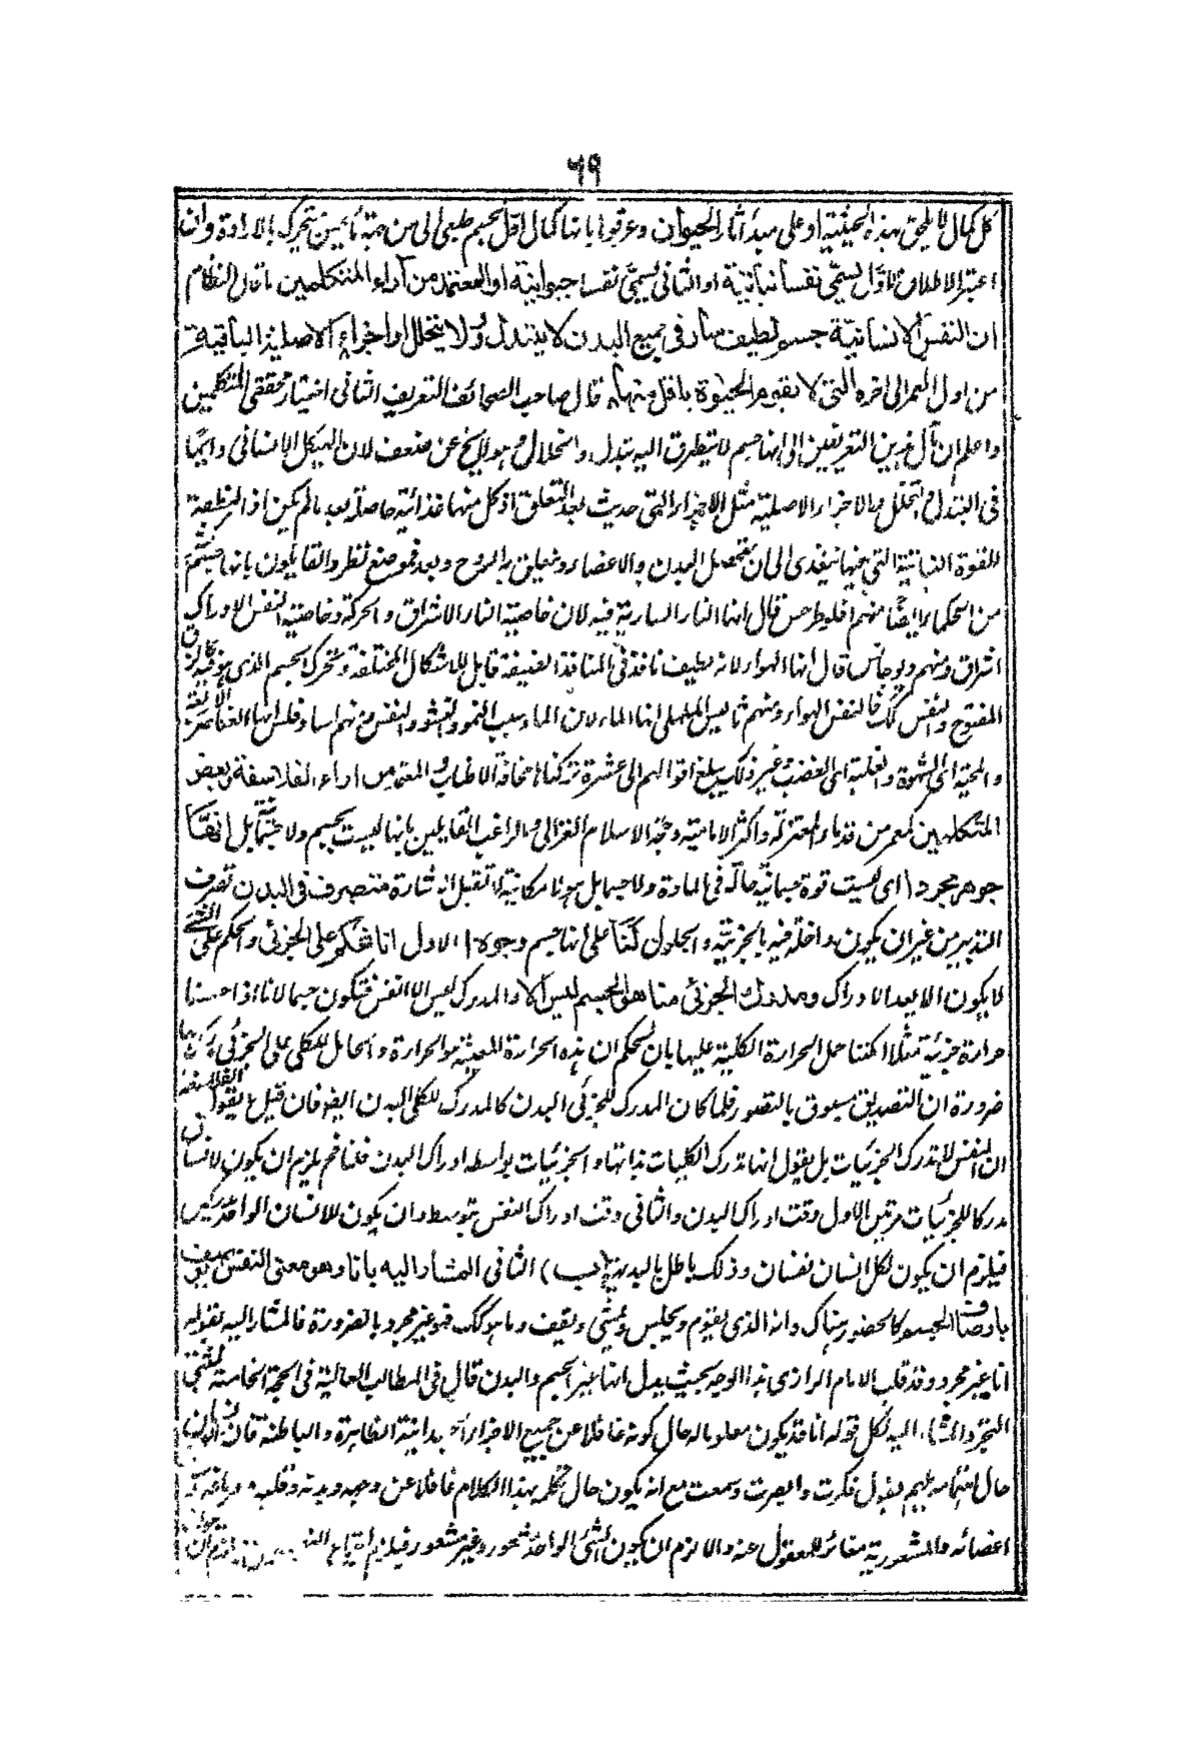 ٦٩
كل كمال لا يلحق بهذه الحيثية او على مبدأ آثار الحيوان وعرفوا بانها كمال اول لجسم طبعى الى من جهة ما يحس يتحرك بالارادة وان
اعتبر الاطلاق فالاول يسمى نفسا نباتية او الثانى يسمى نفسا حيوانية او المعتمد من آراء المتكلمين ما قال النظام
ان النفس الانسانية جسم لطيف سار فى جميع البدن لا يتبدل ولا يتحلل او اجزاء الاصلية الباقية
من اول العمر الى اخره التى لا يقوم الحيوة باقل منها قال صاحب الصحائف التعريف الثانى اختيار محققى المتكلمين
واعلم ان مآل هذين التعريفين الى انها جسم لا يتطرق اليه تبدل وانحلال وهو لا يخ عن ضعف لان الهيكل الانسانى دايما
فى التبدل والتحلل والاجزاء الاصلية مثل الاجزاء التى حدثت بعد التعلق اذ كل منها غذائية حاصلة بعد ما لم يكن اذ النطفة
للقوة النباتية التى فيها تتغذى الى ان يتحصل البدن والاعضاء ويتعلق به الروح وبعد فموضع نظر والقايلون بانها جسم
من الحكماء ايضا منهم افليطرخس قال انها النار السارية فيه لان خاصية النار الاشراق والحركة وخاصية النفس الادراك
اشراق ومنهم ديوجانس قال انها الهواء لانه لطيف نافذ فى المنافذ الضيقة قابل للاشكال المختلفة ويحرك الجسم الذى هو فيه كالزق
المنفوخ والنفس كك فالنفس الهواء ومنهم ثاليس الملطى انها الماء لان الماء سبب النمو والنشو والنفس منهم اساد قلس انها العناصر الاربعة
والمحبة اى الشهوة والغلبة اى الغضب وغير ذلك يبلغ اقوالهم الى عشرة تركناها مخافة الاطناب والمعتمد من اراء الفلاسفة وبعض
المتكلمين كمعمر من قدماء المعتزلة واكثر الامامية وحجة الاسلام الغزالى والراغب القايلين بانها ليست بجسم ولا جسمانية بل انها
جوهر مجرد اى ليست قوة جسمانية حالة فى المادة ولا جسما بل هو لا مكانية لا تقبل اشارة متصرف فى البدن تصرف
التدبير من غير ان يكون داخلة فيه بالجزئية والحلول لنا على انها جسم وجوه ا الاول انا نحكم على الجزئى والحكم على الشئ
لا يكون الا بعد الادراك ومدرك الجزئى منا هو الجسم ليس الا والمدرك ليس الا النفس فتكون جسما لانا اذا احسسنا
حرارة جزئية مثلا امكننا حمل الحرارة الكلية عليها بان نحكم ان هذه الحرارة المعينة هو الحرارة والحامل للكلى على الجزئى
ضرورة ان التصديق مسبوق بالتصور فلما كان المدرك للجزئى البدن كالمدرك للكلى البدن ايضا فان قيل لا يقول الفلاسفة
ان النفس لا تدرك الجزئيات بل يقول انها تدرك الكليات بذاتها والجزئيات بواسطة ادراك البدن قلنا فح يلزم ان يكون الانسان
مدركا للجزئيات مرتين الاول وقت ادراك البدن والثانى وقت ادراك النفس بتوسط وان يكون للانسان الواحد مدركين
فيلزم ان يكون لكل انسان نفسان وذلك باطل بالبديهة (ب) الثانى المشار اليه بانا وهو معنى النفس يتصف
باوصاف الجسم كالحضور هناك وانه الذى يقوم ويجلس ويمشى ويقف وما هو كك فهو غير مجرد بالضرورة فالمشار اليه بقوله
انا غير مجرد وقد قلب الامام الرازى هذا الوجه بحيث يدل انها غير الجسم والبدن قال فى المطالب العالية فى الحجة الخامسة لمثبتى
التجرد المشار اليه لكل قوله انا قد يكون معلوما له حال كونه غافلا عن جميع الاجزاء البدانية الظاهرة والباطنة فان الانسان
حال اهتمامه بمهم يقول فكرت وابصرت وسمعت مع انه يكون حال تكلم بهذا الكلام غافلا عن وجهه ويديه وقلبه ودماغه
اعضائه والمشعور به مغائر للمعقول عنه والا لزم ان يكون الشئ الواحد مشعور وغير مشعور فيلزم اجتماع